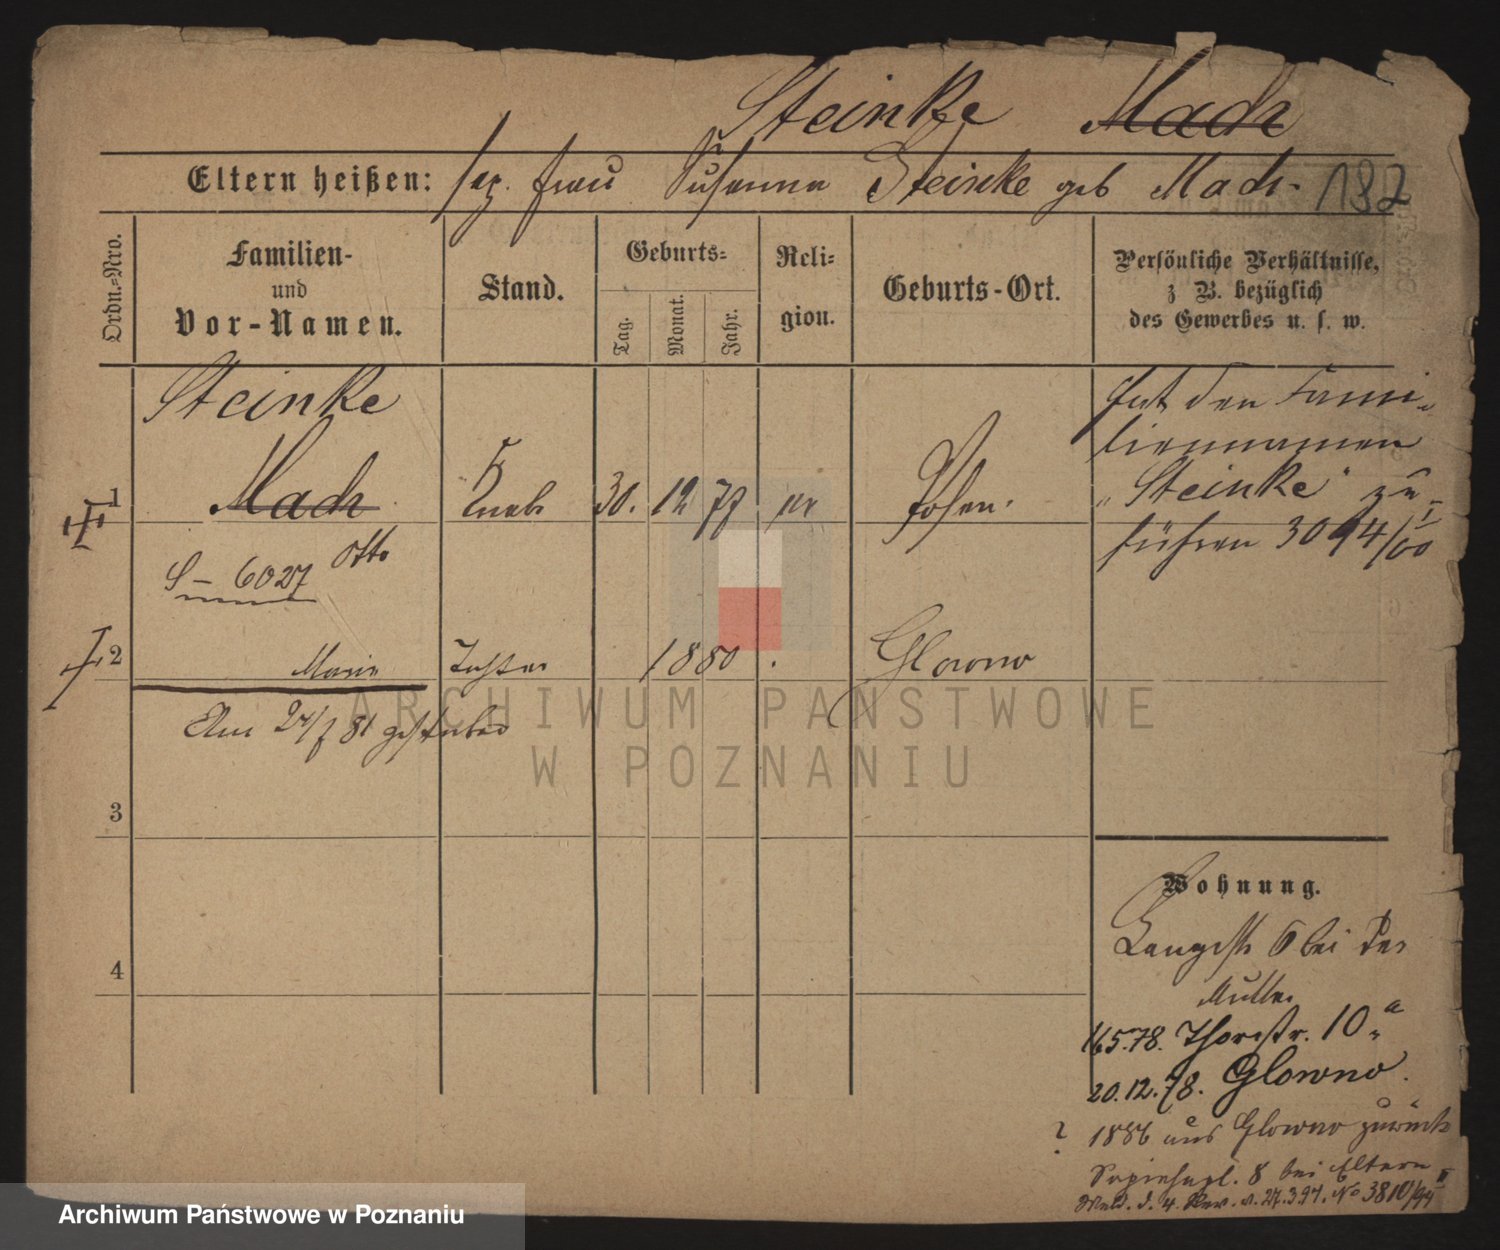 Steinke Mach
Eltern heißen: sep. Frau Susanna Steinke geb Mach. 182
Ordn.-Nro.
Familien-
und
Vor-Namen.
Stand.
Geburts-
Tag.
Monat.
Jahr.
Reli-
gion.
Geburts-Ort.
Persönliche Verhältnisse,
z B. bezüglich
des Gewerbes u. s. w.
Steinke
1 Mach Knabe 30. 12 77 ev Posen.
Otto
S- 6027
hat den Fami-
liennamen
„Steinke" zu
führen 3094/00
2 Marie Tochter 1880 Glowno
Am 24/7 81 gestorben
3
4
Wohnung.
Langestr 6 bei der
Mutter
16.5.78. Thorstr. 10a
20.12.78. Glowno.
? 1886 aus Glowno zurück
Sapiehapl. 8 bei Eltern
Meld. d. 4. Rev. v. 27.3.94. No 3810/94 II
ARCHIWUM PAŃSTWOWE
W POZNANIU
Archiwum Państwowe w Poznaniu